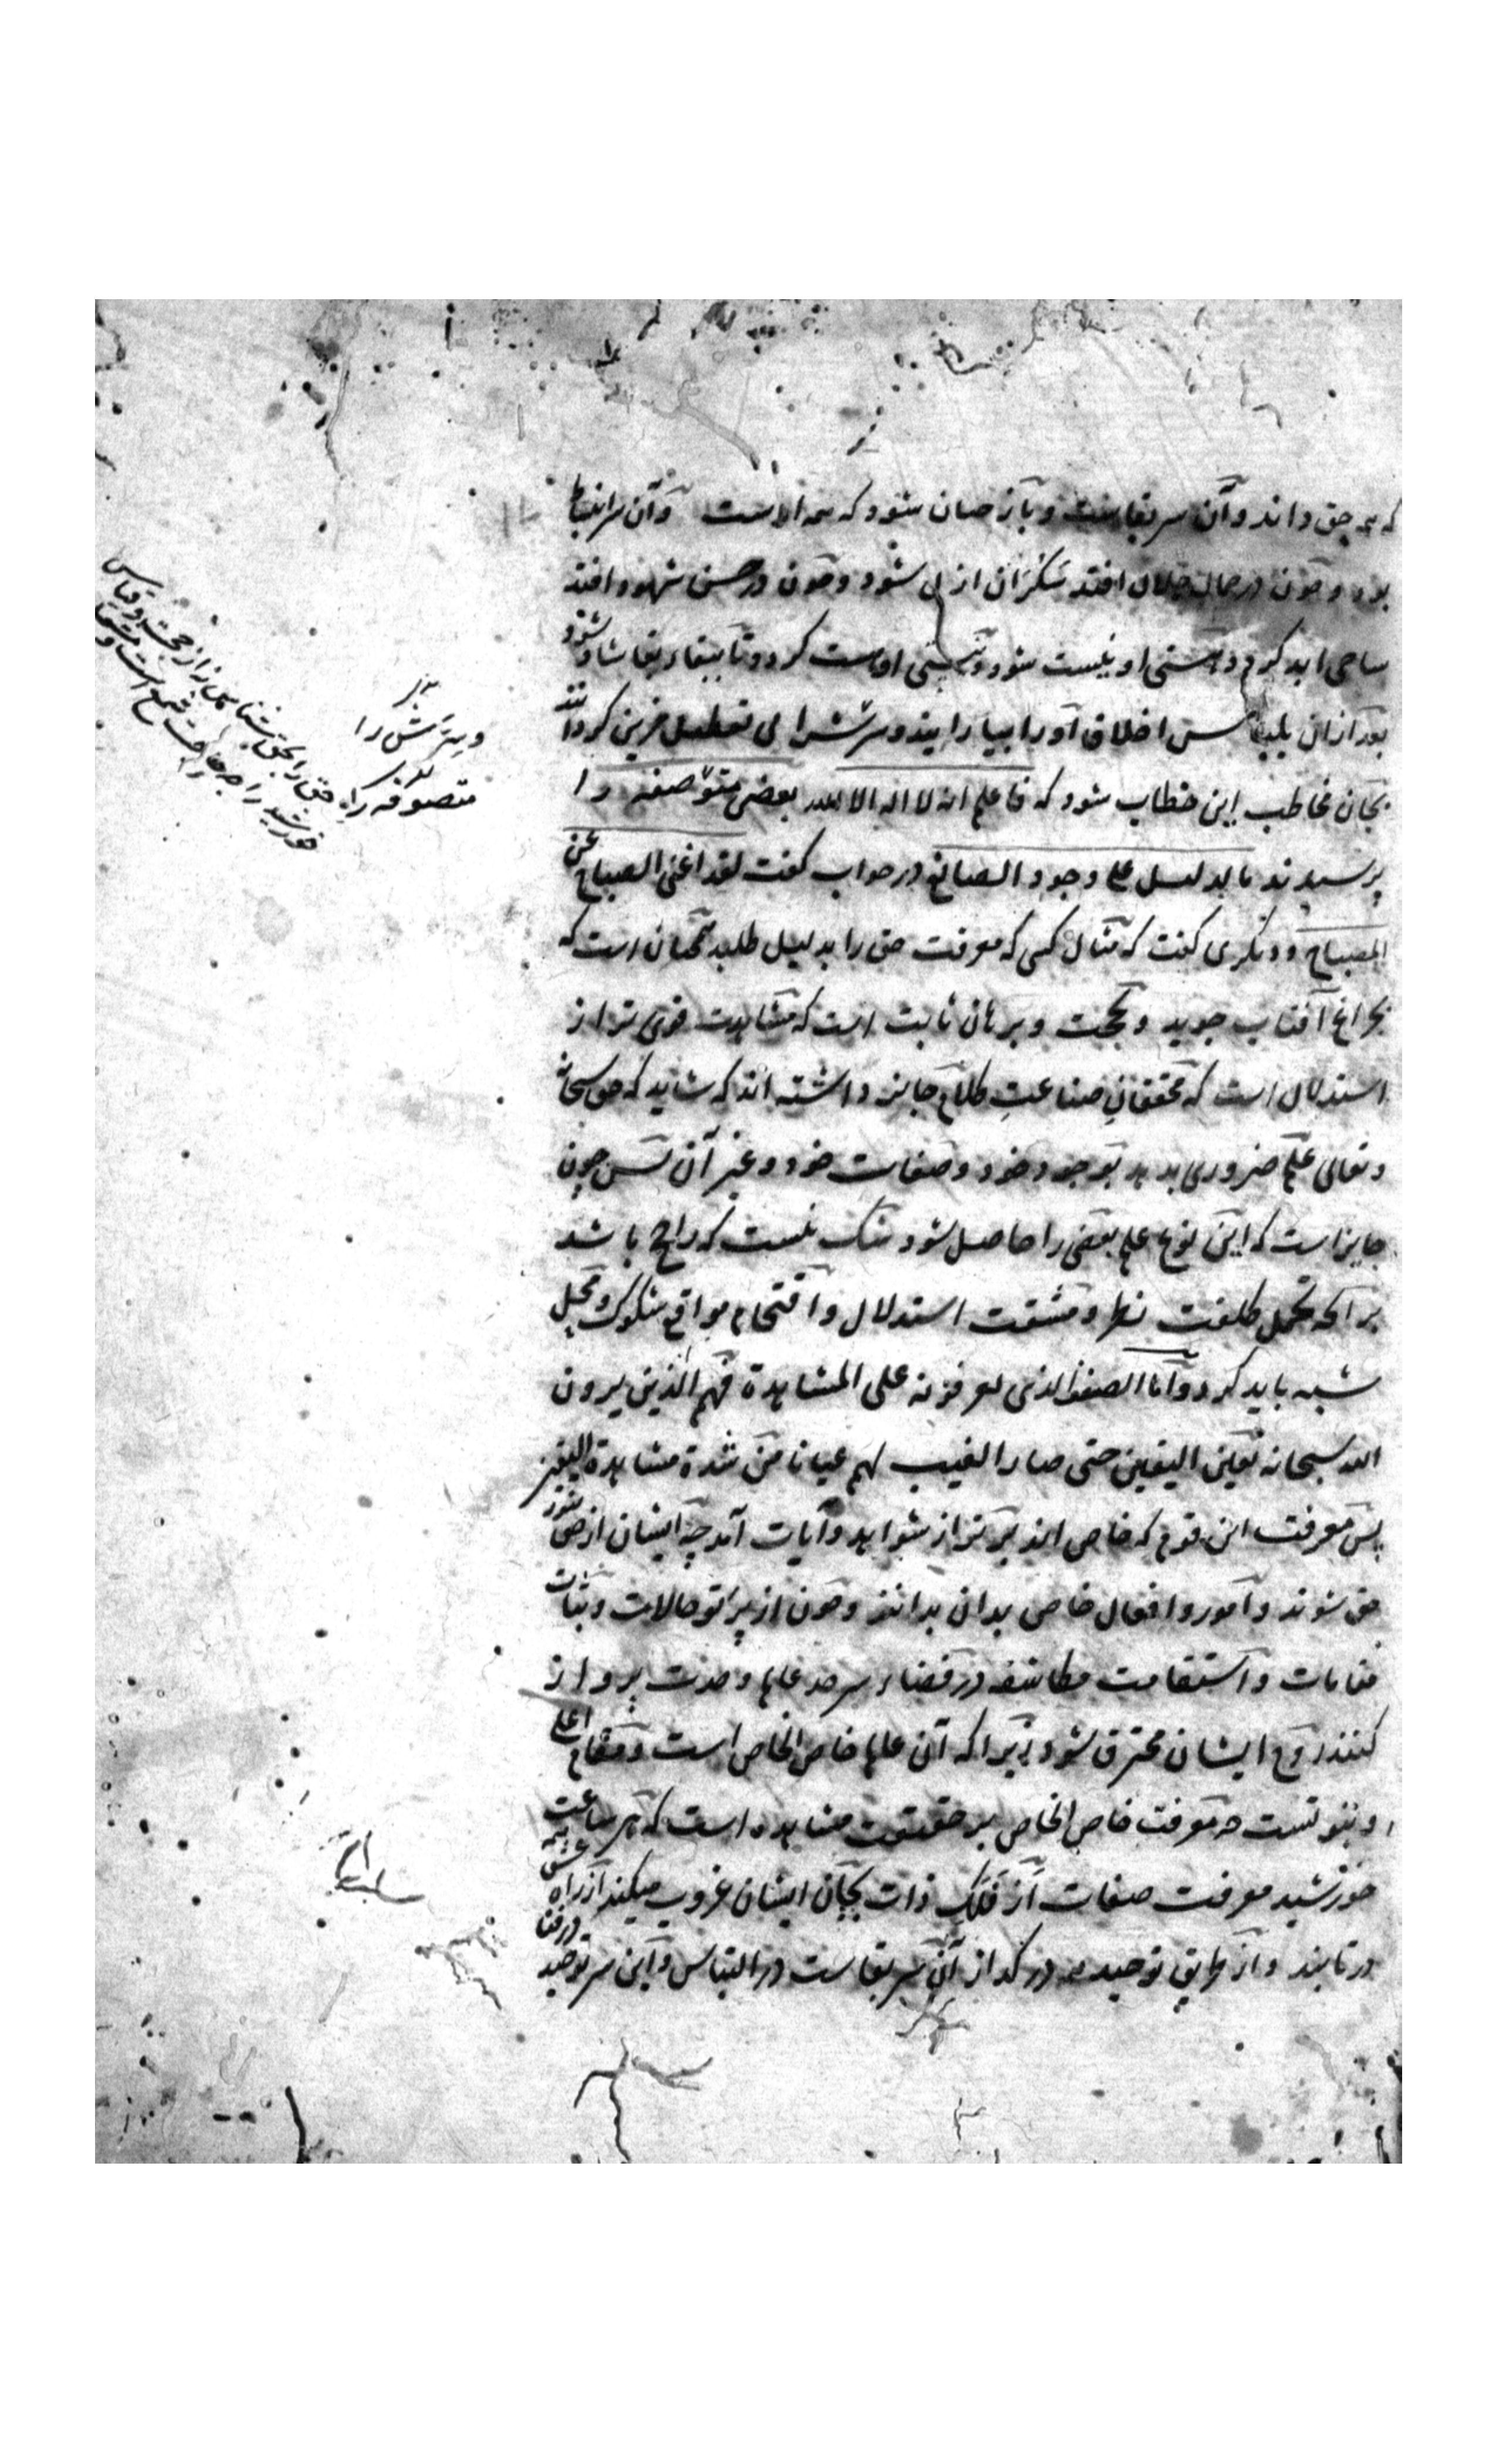 که همه حق داند و آن سر بقاست و باز چنان شود که همه اوست و آن سر
بود و چون در جمال جلال افتد سکران ازلی شود و چون در حسن شهود افتد
صاحی ابد گردد هستی او نیست شود و نیستی او هست گردد تا ببقاء بقا شاد شود
بعد از آن بلباس اخلاق او را بیارایند و سرشرا بی تعطیل قرین گردانند
بجان مخاطب این خطاب شود که فاعلم انه لا اله الا الله بعضی متوصفه را
پرسیدند ما الدلیل علی وجود الصانع در جواب گفت لقد اغنی الصباح عن
المصباح و دیگری گفت که مثال کسی که معرفت حق را بدلیل طلبد همچنان است که
بچراغ آفتاب جوید و بحجت و برهان ثابت است که مشاهدت قوی تر از
استدلال است که محققان صناعت کلام جایز داشته اند که شاید که حق سبحانه
و تعالی علم ضروری بدهد بوجود خود و صفات خود و غیر آن پس چون
جایز است که این نوع علم بعضی را حاصل شود شک نیست که راجح باشد
بر آنکه تحمل کلفت نظر و مشقت استدلال و اقتحام مواقع شکوک و محل
شبه باید کرد و اما الصنف الذی یعرفونه علی المشاهدة فهم الذین یرون
الله سبحانه بعین الیقین حتی صار الغیب لهم عیانا من شدة مشاهدة الیقین
پس معرفت این قوم که خاص اند برتر از شواهد و آیات آمد چه ایشان از حق بنور
حق شوند و امور و افعال خاص بدان بدانند و چون از پرتو حالات و ثبات
مقامات و استقامت مکاشفه در فضاء سرحد عالم وحدت پرواز
کنند روح ایشان محترق شود زیرا که آن عالم خاص الخاص است و مقام اعلی
و بینوتست چه معرفت خاص الخاص بر حقیقت مشاهده است که هر ساعت
خورشید معرفت صفات از فلک ذات بجان ایشان غروب میکند از راه عشق همه
در تابند و از طریق توحید همه در گداز آن سر بقاست در التباس و این سر توحید در فنا
و سرش را
متصوفه را
حق را بحق شناس نه از حجت و قیاس
خورشید را چه حاجت شمع است و